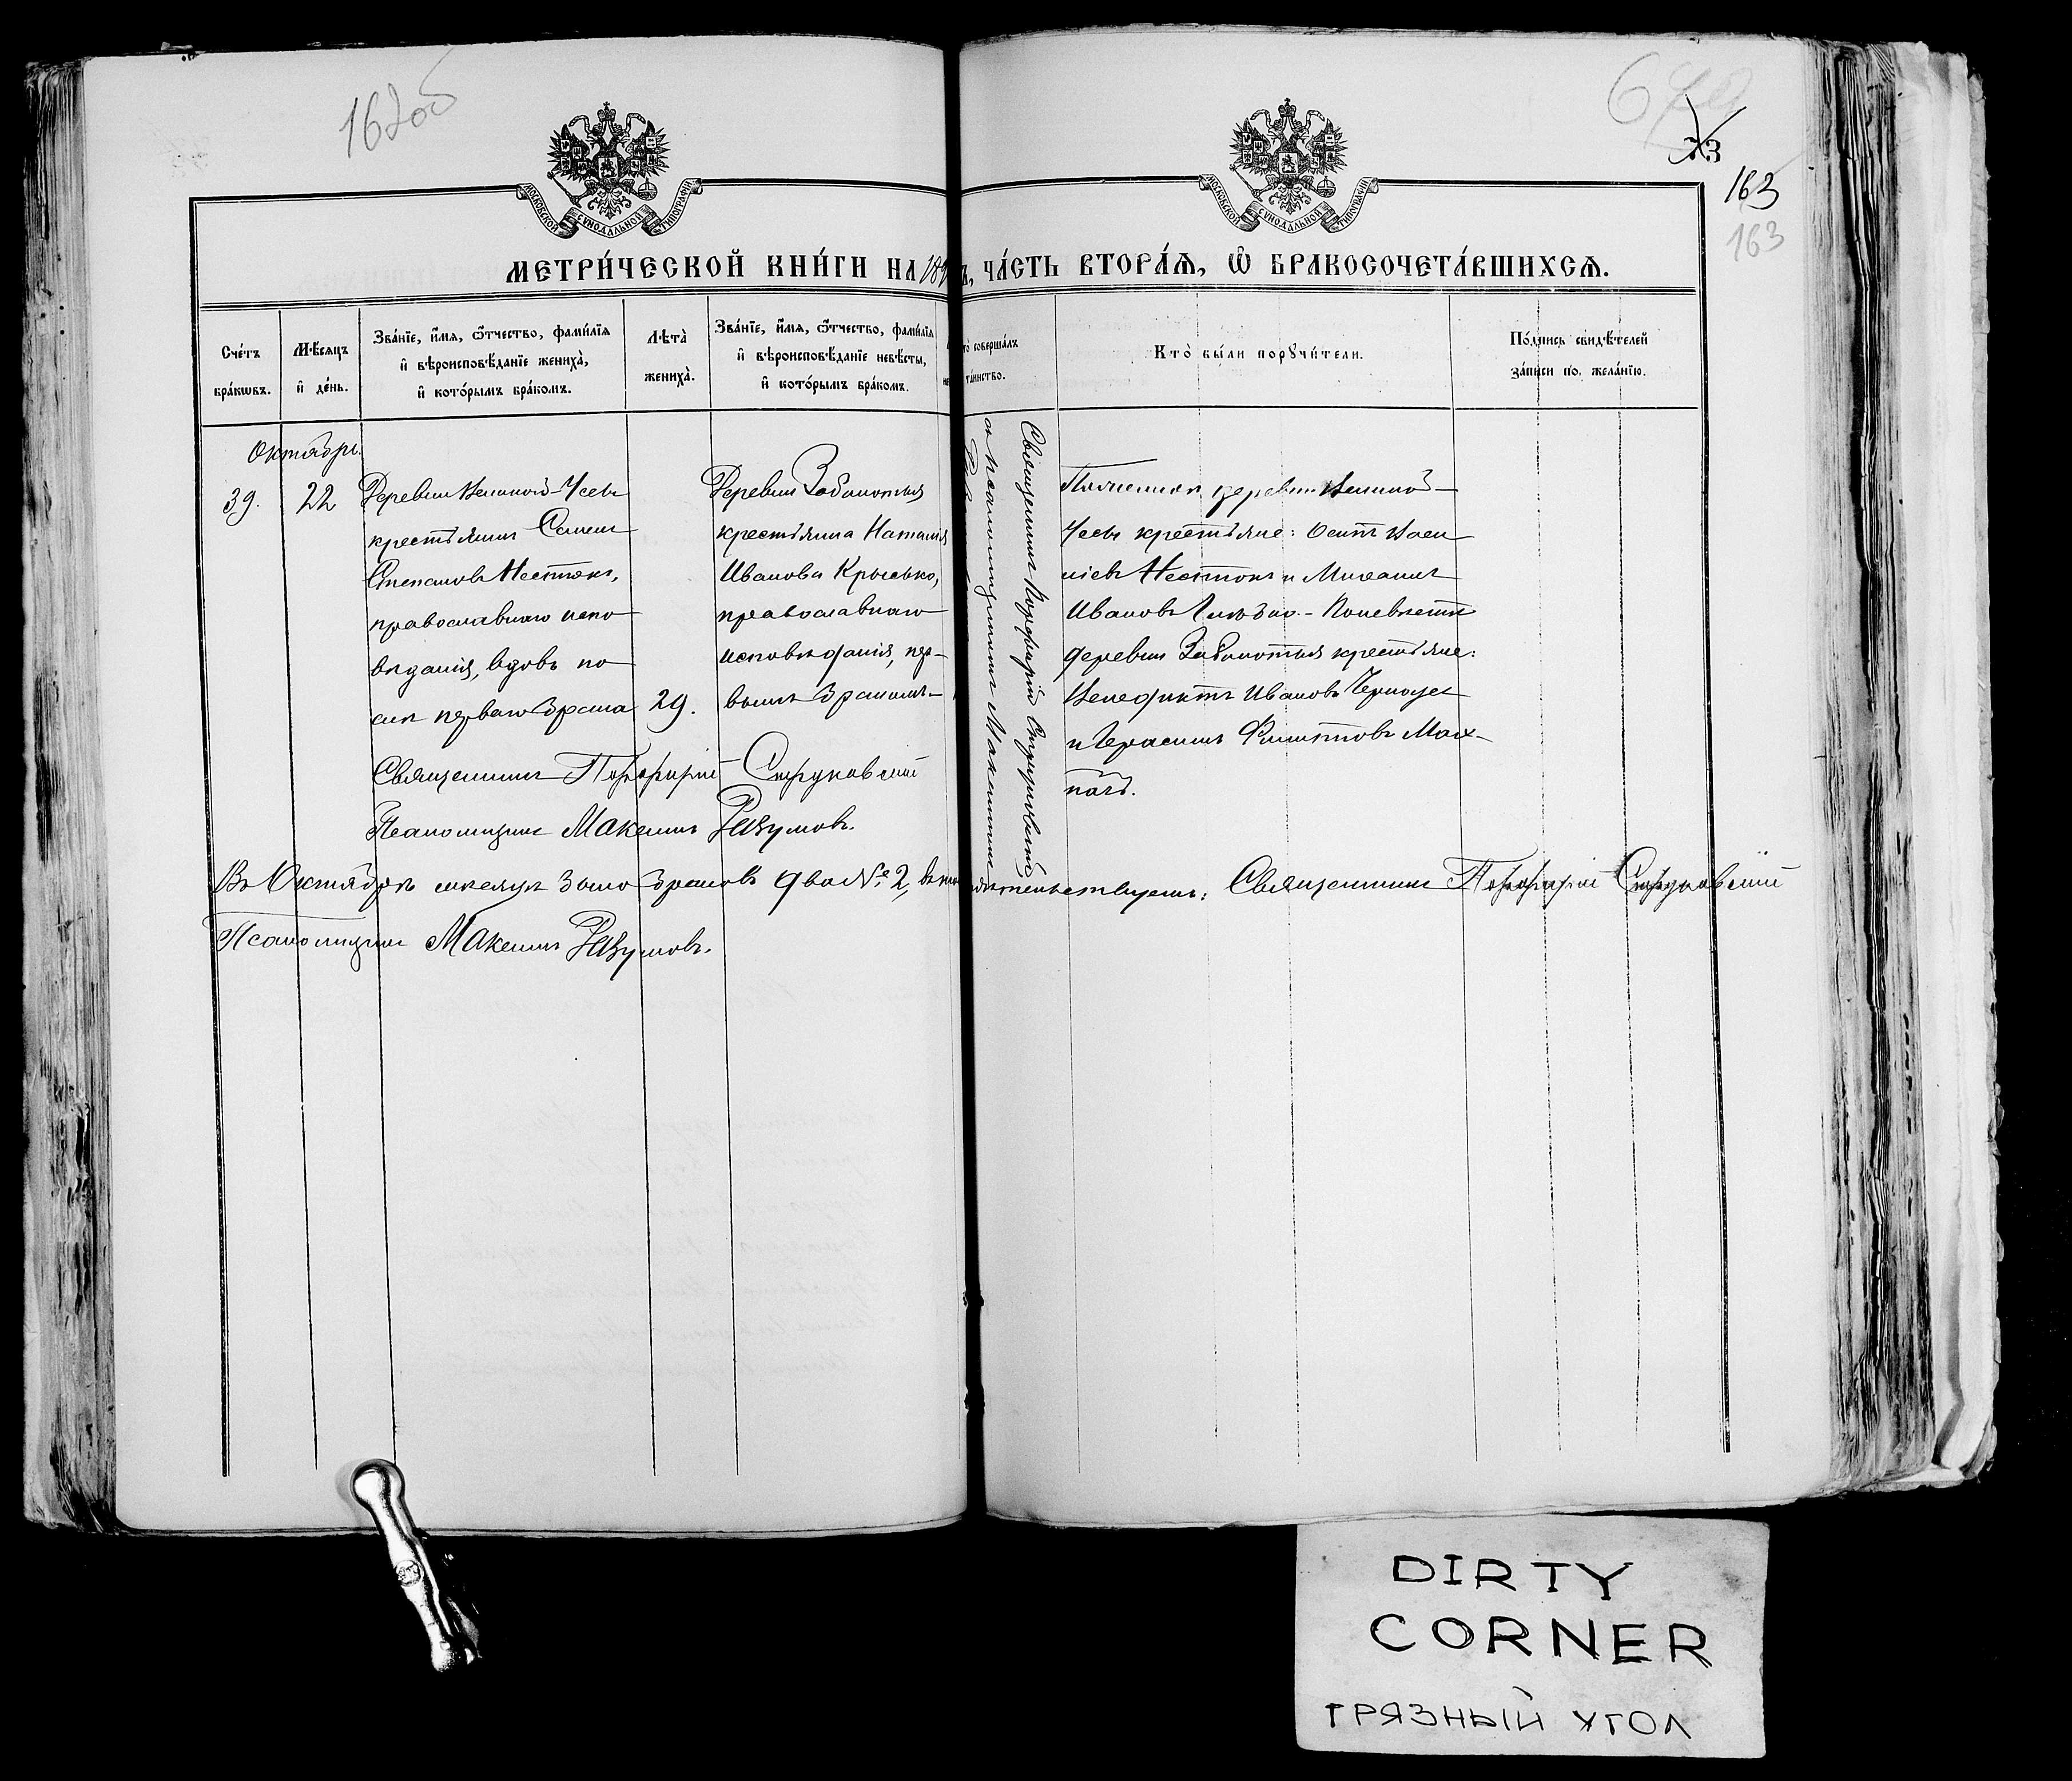 162об
163
163
МОСКОВСКОЙ СѴНОДАЛЬНОЙ ТИПОГРАФІИ
МОСКОВСКОЙ СѴНОДАЛЬНОЙ ТИПОГРАФІИ
МЕТРИ́ЧЕСКОЙ КНИ́ГИ НА 18 ЧА́СТЬ ВТОРА́Ѧ, Ѽ БРАКОСОЧЕТА́ВШИХСѦ.
Сче́тъ бра́кѡвъ.
Мѣ́сѧцъ и҆ де́нь.
Зва́нїе, и҆́мѧ, ѻ҆́тчество, фамѝлїѧ и҆ вѣроисповѣ́данїе жениха̀, и҆ кото́рымъ бра́комъ.
Лѣ́та̀ жениха̀.
Зва́нїе, и҆́мѧ, ѻ҆́тчество, фамѝлїѧ и҆ вѣроисповѣ́данїе невѣ́сты, и҆ кото́рымъ бра́комъ.
соверша́лъ та́инство.
Кто̀ бы́ли порꙋчи́тели.
По́дпись свидѣ́телей за́писи по жела́нїю.
Октябрь.
39.
22
Деревни Великой-Усы
крестьянинъ Семенъ
Степановъ Нестюкъ,
православнаго испо
вѣданія, вдовъ по
слѣ перваго брака
29.
Деревни Заболотья
крестьянка Наталія
Иванова Крысько,
православнаго
исповѣданія, пер-
вымъ бракомъ
Священникъ Порфирій Струковскій
и псаломщикъ Максимъ
По женихѣ деревни Великой-
Усы крестьяне: Осипъ
Нестюкъ и Михаилъ
Ивановъ По невѣстѣ
деревни Заболотья крестьяне:
Венедиктъ Ивановъ
и Герасимъ Филиповъ Мох-
начъ.
Священникъ Порфирій Струковскій
Псаломщикъ Максимъ Разумовъ.
Въ Октябрѣ мѣсяцѣ было браковъ два № 2, Священникъ Порфирій Струковскій
Псаломщикъ Максимъ Разумовъ.
DIRTY
CORNER
ГРЯЗНЫЙ УГОЛ